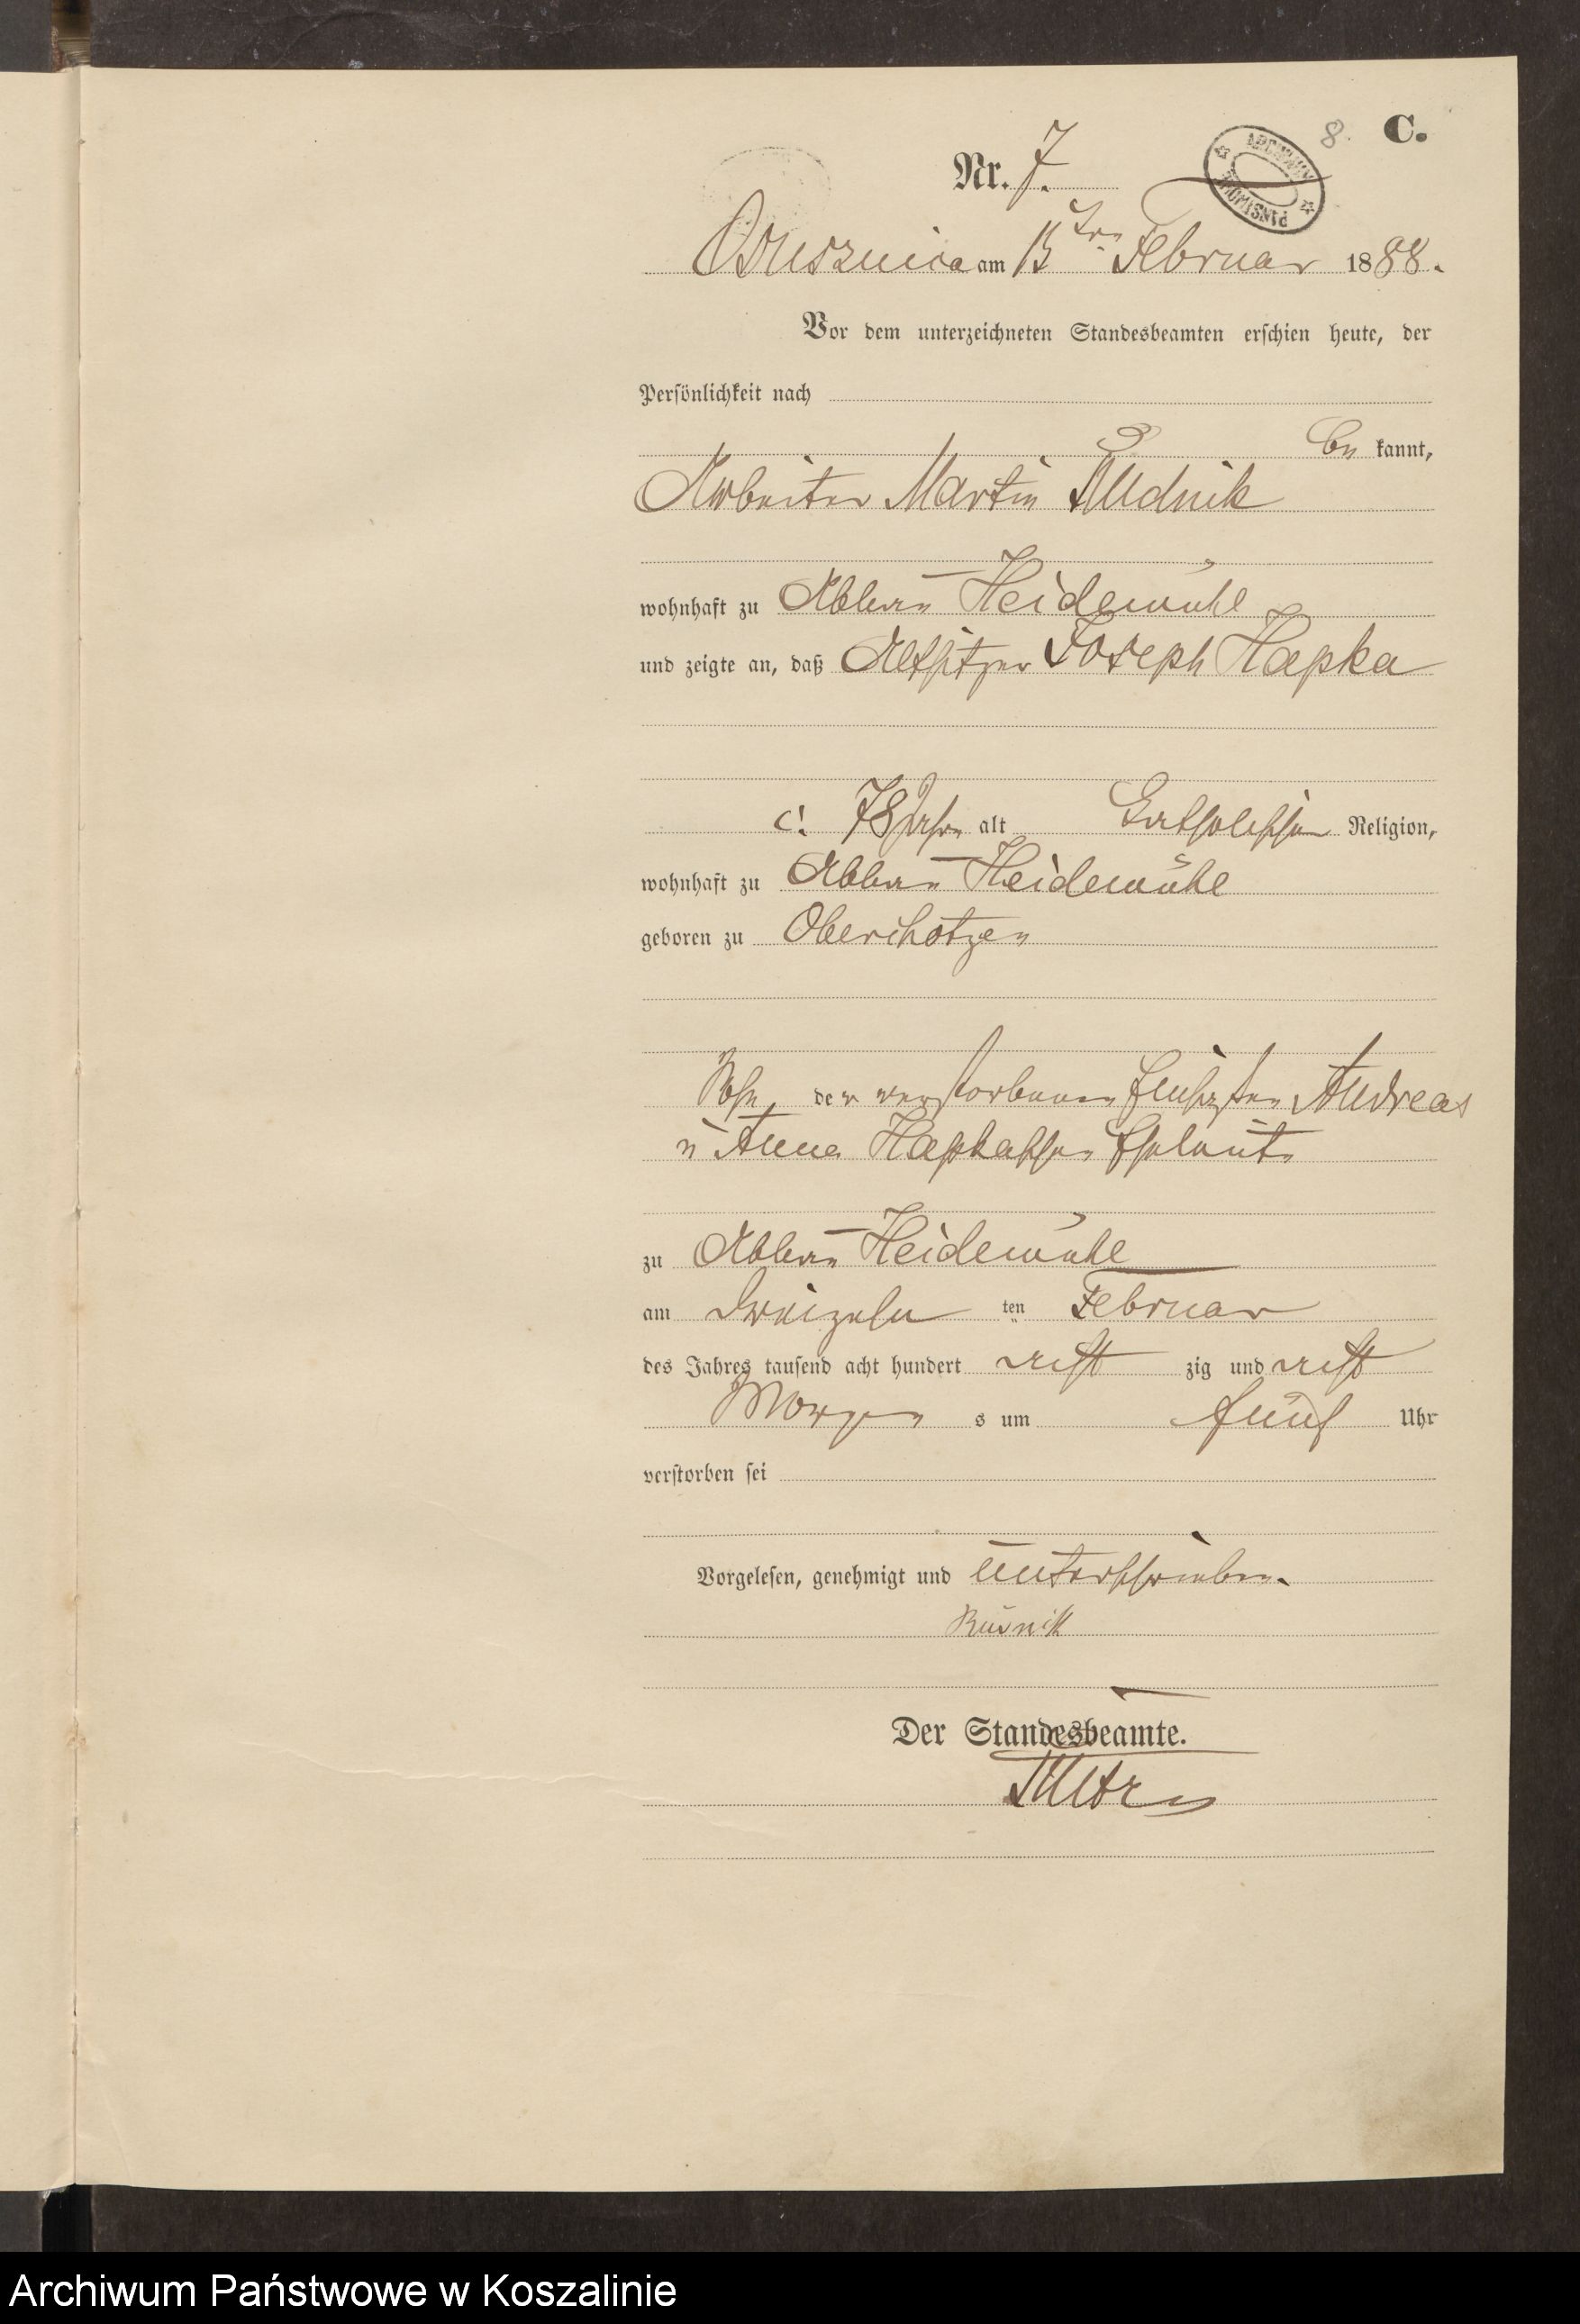 8. C.
ARCHIWUM PAŃSTWOWE
Nr. 7.
Ossusznica am 13 ten Februar 1888.
Vor dem unterzeichneten Standesbeamten erschien heute, der
Persönlichkeit nach
be kannt,
Arbeiter Martin Rudnik
wohnhaft zu Abbau Heidemühl
und zeigte an, daß Altsitzer Joseph Hapka
c. 78 Jahre alt katholischer Religion,
wohnhaft zu Abbau Heidemühl
geboren zu Oberchotzen
Sohn der verstorbenen Andreas
u Anna Hapkaschen Eheleute
zu Abbau Heidemühl
am Dreizehn ten Februar
des Jahres tausend acht hundert acht zig und acht
Morgen s um fünf Uhr
verstorben sei
Vorgelesen, genehmigt und unterschrieben.
Rudnik
Der Standesbeamte.
Archiwum Państwowe w Koszalinie